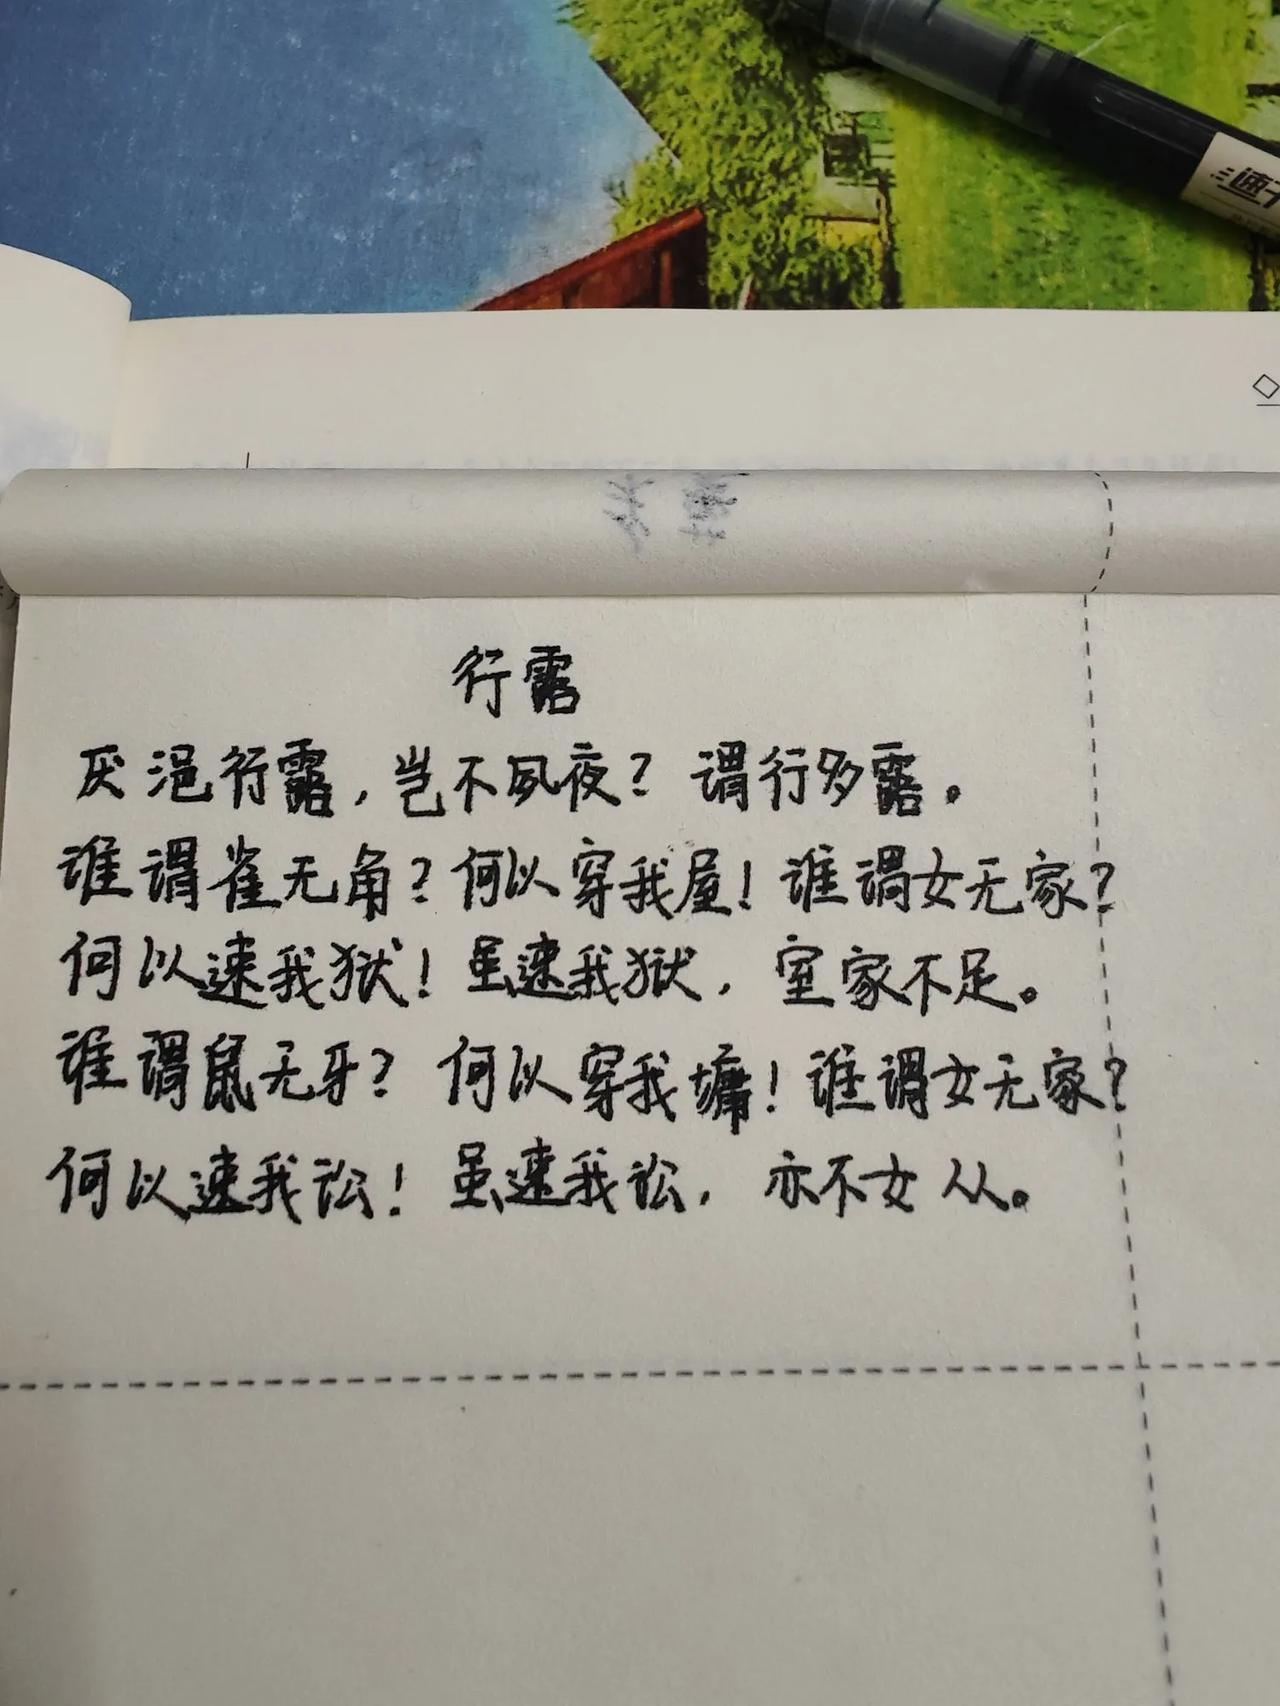 速干
行露
厌浥行露，岂不夙夜？谓行多露。
谁谓雀无角？何以穿我屋！谁谓女无家？
何以速我狱！虽速我狱，室家不足。
谁谓鼠无牙？何以穿我墉！谁谓女无家？
何以速我讼！虽速我讼，亦不女从。